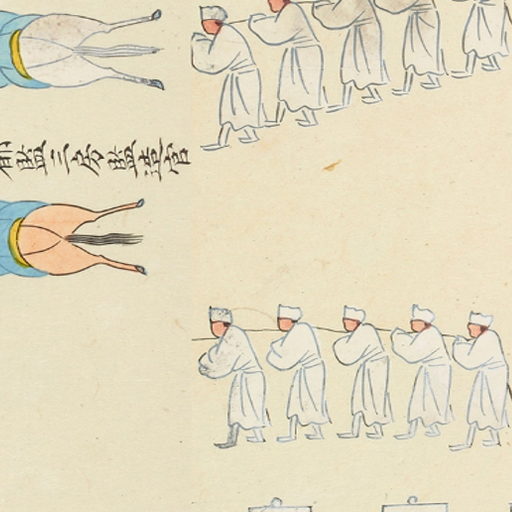 都監三房監造官